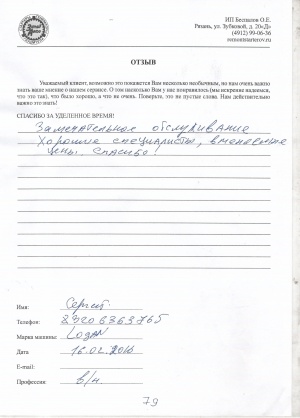 ИП Беспалов О.Е.
Рязань, ул. Зубковой, д. 20«Д»
(4912) 99-06-36
remontstarterov.ru
ОТЗЫВ
Уважаемый клиент, возможно это покажется Вам несколько необычным, но нам очень важно
знать ваше мнение о нашем сервисе. О том насколько Вам у нас понравилось (мы искренне надеемся,
что это так), что было хорошо, а что не очень. Поверьте, это не пустые слова. Нам действительно
важно это знать!
СПАСИБО ЗА УДЕЛЕННОЕ ВРЕМЯ!
Замечательное обслуживание
Хорошие специалисты, вменяемые
цены. Спасибо!
Имя: Сергей
Телефон: 89206363765
Марка машины: Logan
Дата 16.02.2016
E-mail:
Профессия: в/н
79